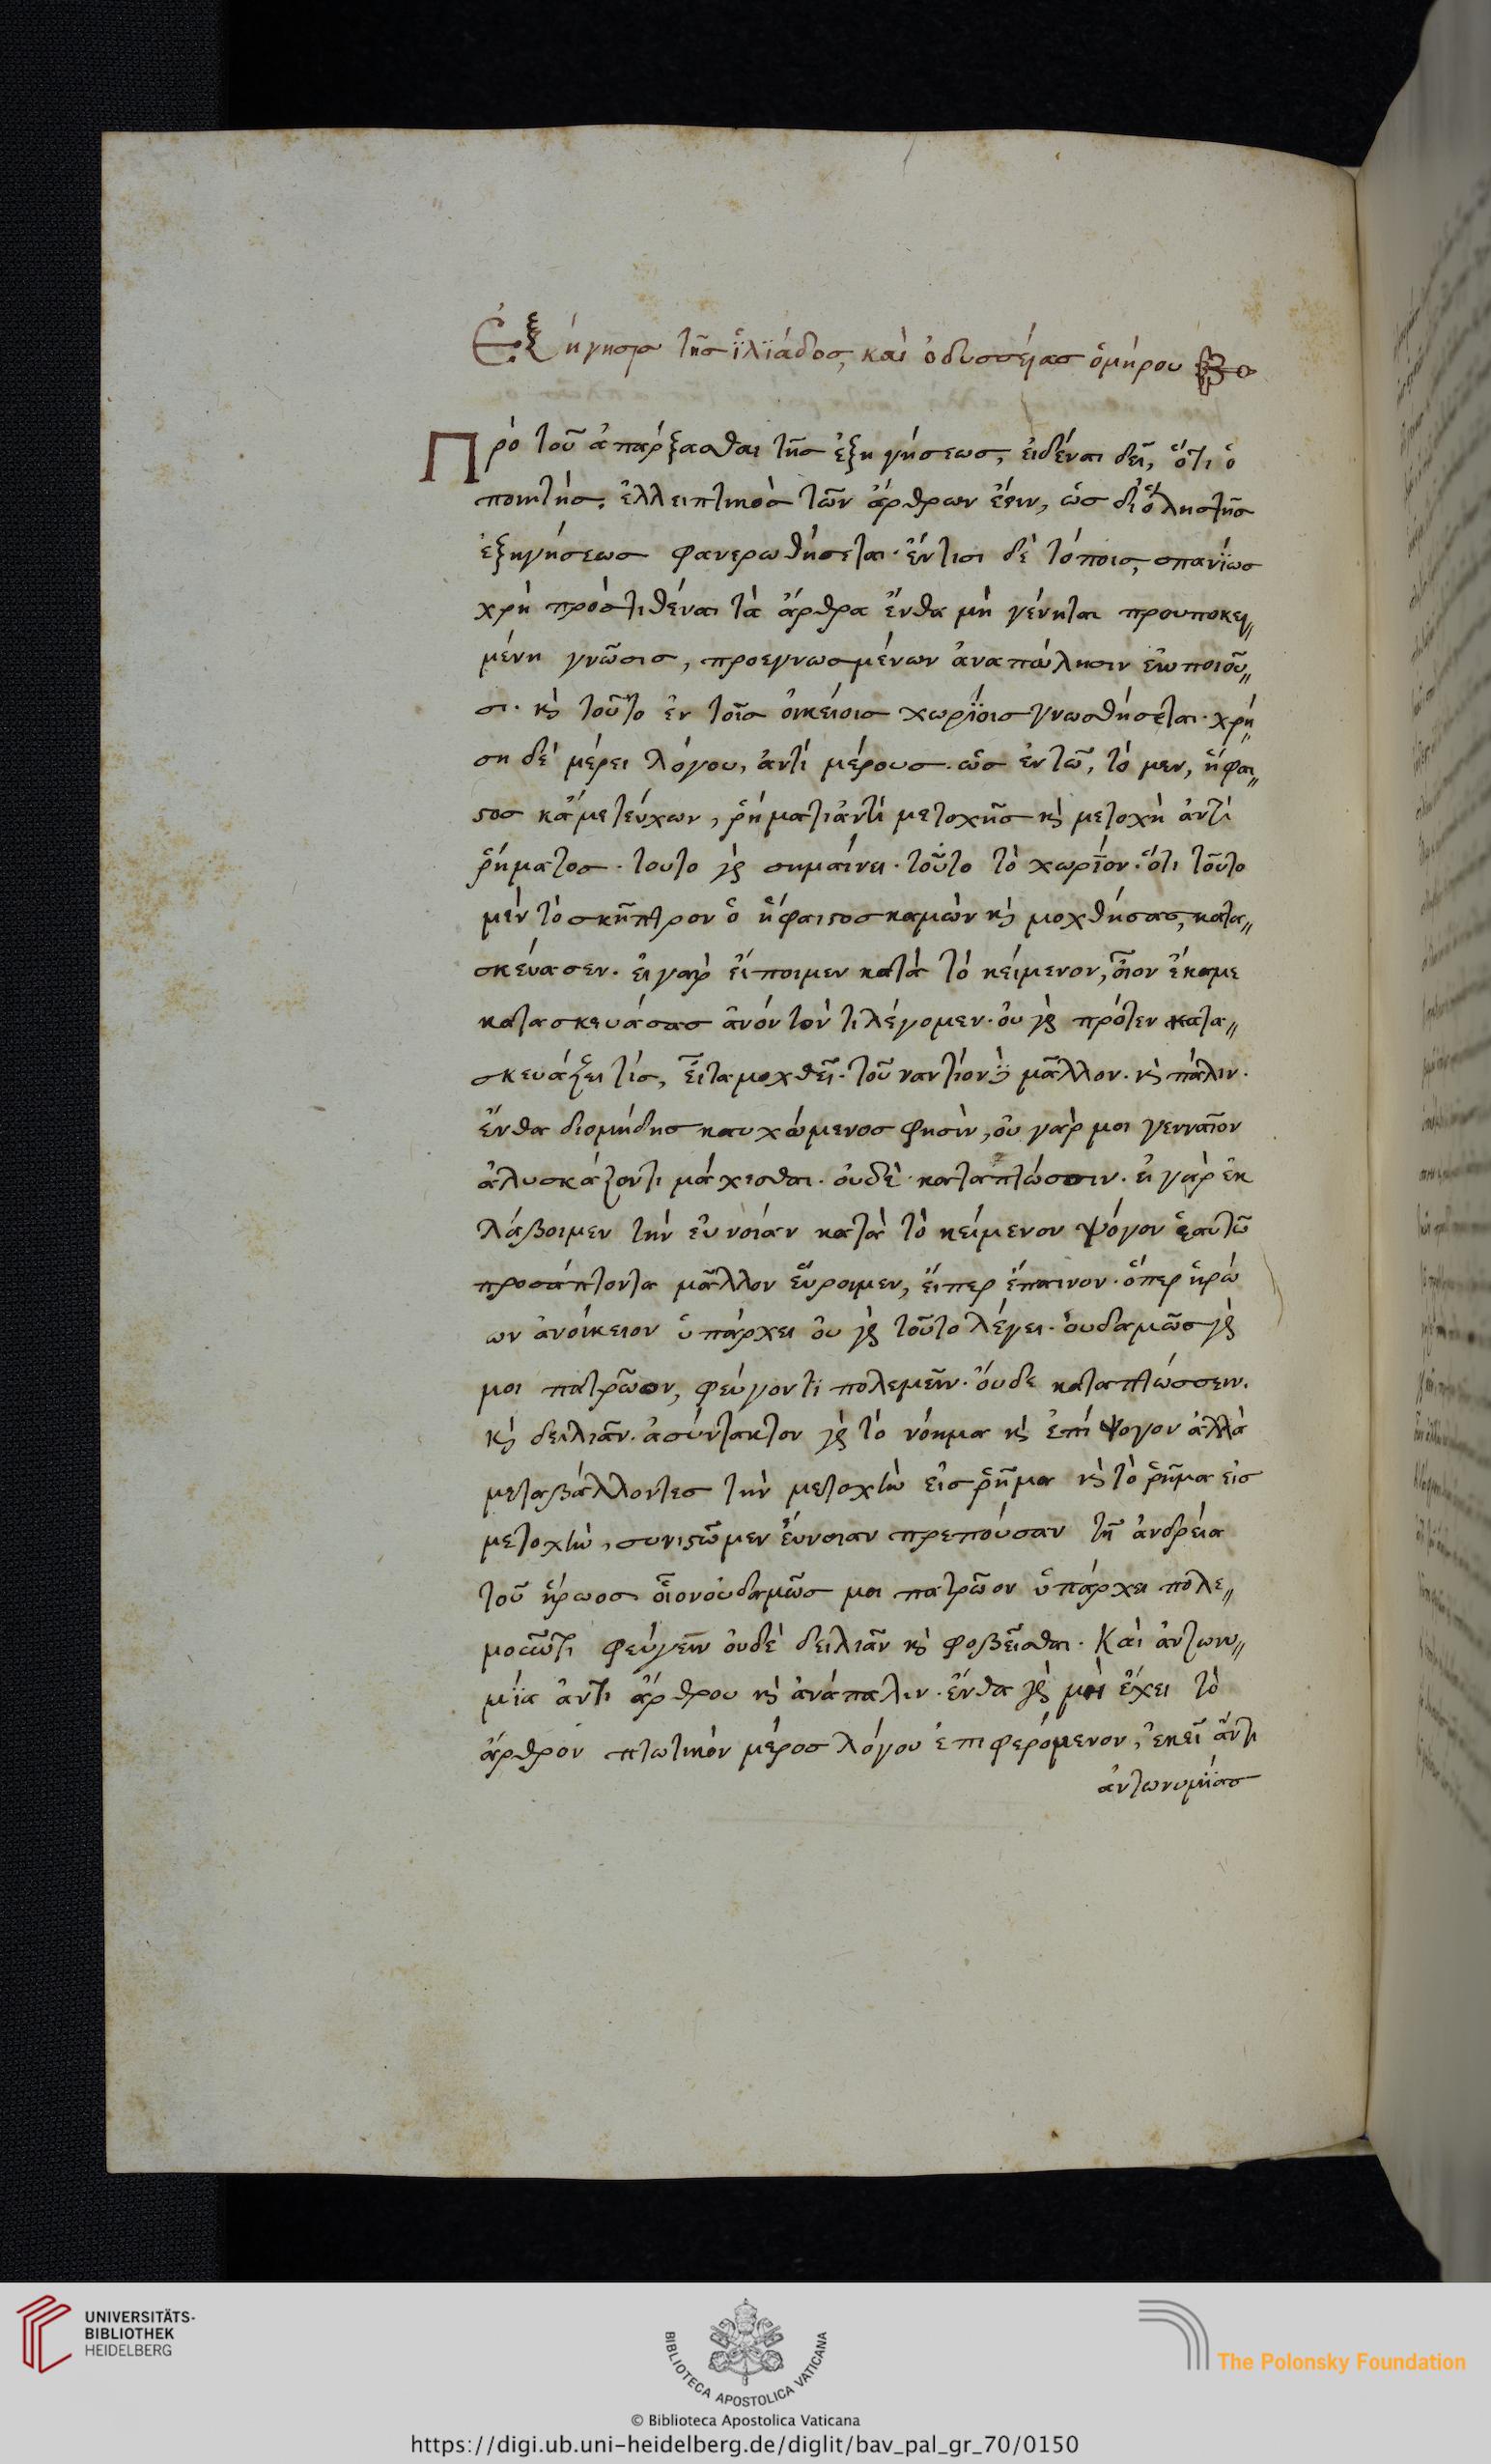 Ἐξήγησις τῆς ἰλϊάδος, καὶ ὀδυσσείας ὁμήρου
Πρὸ τοῦ ἀπάρξασθαι τῆς ἐξηγήσεως, εἰδέναι δεῖ, ὅτι ὁ
ποιητής, ἐλλειπτικὸς τῶν ἄρθρων ἐστιν, ὡς δἰ ὅλης τῆς
ἐξηγήσεως φανερωθήσεται· ἔν τισι δὲ τόποις, σπανΐως
χρὴ προστιθέναι τὰ ἄρθρα ἔνθα μὴ γένηται προυποκει〃
μένη γνῶσις, προεγνωσμένων ἀναπώλησιν ποιοῦ〃
σι· κὶ τοῦτο ἐν τοῖς οἰκείοις χωρΐοις γνωσθήσεται· χρή〃
ση δὲ μέρει λόγου, ἀντὶ μέρους· ὡς ἐν τῶ, τὸ μεν, ἥφαι〃
στος κάμε τεύχων, ῥήματι ἀντὶ μετοχῆς κὶ μετοχὴ ἀντὶ
ῥήματος· τουτο γὰρ σημαίνει· τοῦτο τὸ χωρΐον· ὅτι τοῦτο
μὲν τὸ σκῆπτρον ὁ ἥφαιστος καμὼν κὶ μοχθήσας, κατα〃
σκεύασεν· εἰ γαρ εἴποιμεν κατὰ τὸ κείμενον, οἷον ἔκαμε
κατασκευάσας ἀνόητόν τι λέγομεν· οὐ γὰρ πρότερον κατα〃
σκευάζει τίς, εἶτα μοχθεῖ· τοὐναντίον μᾶλλον· κὶ πάλιν·
ἔνθα διομήδης καυχώμενος φησὶν, οὐ γάρ μοι γενναῖον
ἀλυσκάζοντι μάχεσθαι· οὐδὲ καταπτώσσιν· εἰ γὰρ ἐκ
λάβοιμεν τὴν εὐνοίαν κατὰ τὸ κείμενον ψόγον ἑαυτῶ
προσάπτοντα μᾶλλον εὕροιμεν, εἴπερ ἔπαινον· ὅπερ ἡρώ
ων ἀνοίκειον ὑπάρχει οὐ γὰρ τοῦτο λέγει· οὐδαμῶς γὰρ
μοι πατρῶον, φεύγοντι πολεμεῖν· οὐδε καταπτώσσειν·
κὶ δειλιᾶν· ἀσύντακτον γὰρ τὸ νόημα κὶ ἐπὶ ψογον ἀλλὰ
μεταβάλλοντες τὴν μετοχὴν εἰς ῥῆμα κὶ τὸ ῥῆμα εἰς
μετοχὴν, συνιστῶμεν εὔνοιαν πρεπούσαν τῆ ἀνδρεία
τοῦ ἥρωος οἷον οὐδαμῶς μοι πατρῶον ὑπάρχει πολε〃
μοῦντι φεύγειν οὐδὲ δειλιᾶν κὶ φοβεῖσθαι· Καὶ ἀντωνυ〃
μΐα ἀντι ἄρθρου κὶ ἀνάπαλιν· ἔνθα γὰρ μὴ ἔχει τὸ
ἄρθρον πτωτικὸν μέρος λόγου ἐπιφερόμενον, ἐκεῖ ἀντι
ἀντωνυμΐας
UNIVERSITÄTS-
BIBLIOTHEK
HEIDELBERG
BIBLIOTECA APOSTOLICA VATICANA
The Polonsky Foundation
© Biblioteca Apostolica Vaticana
https://digi.ub.uni-heidelberg.de/diglit/bav_pal_gr_70/0150